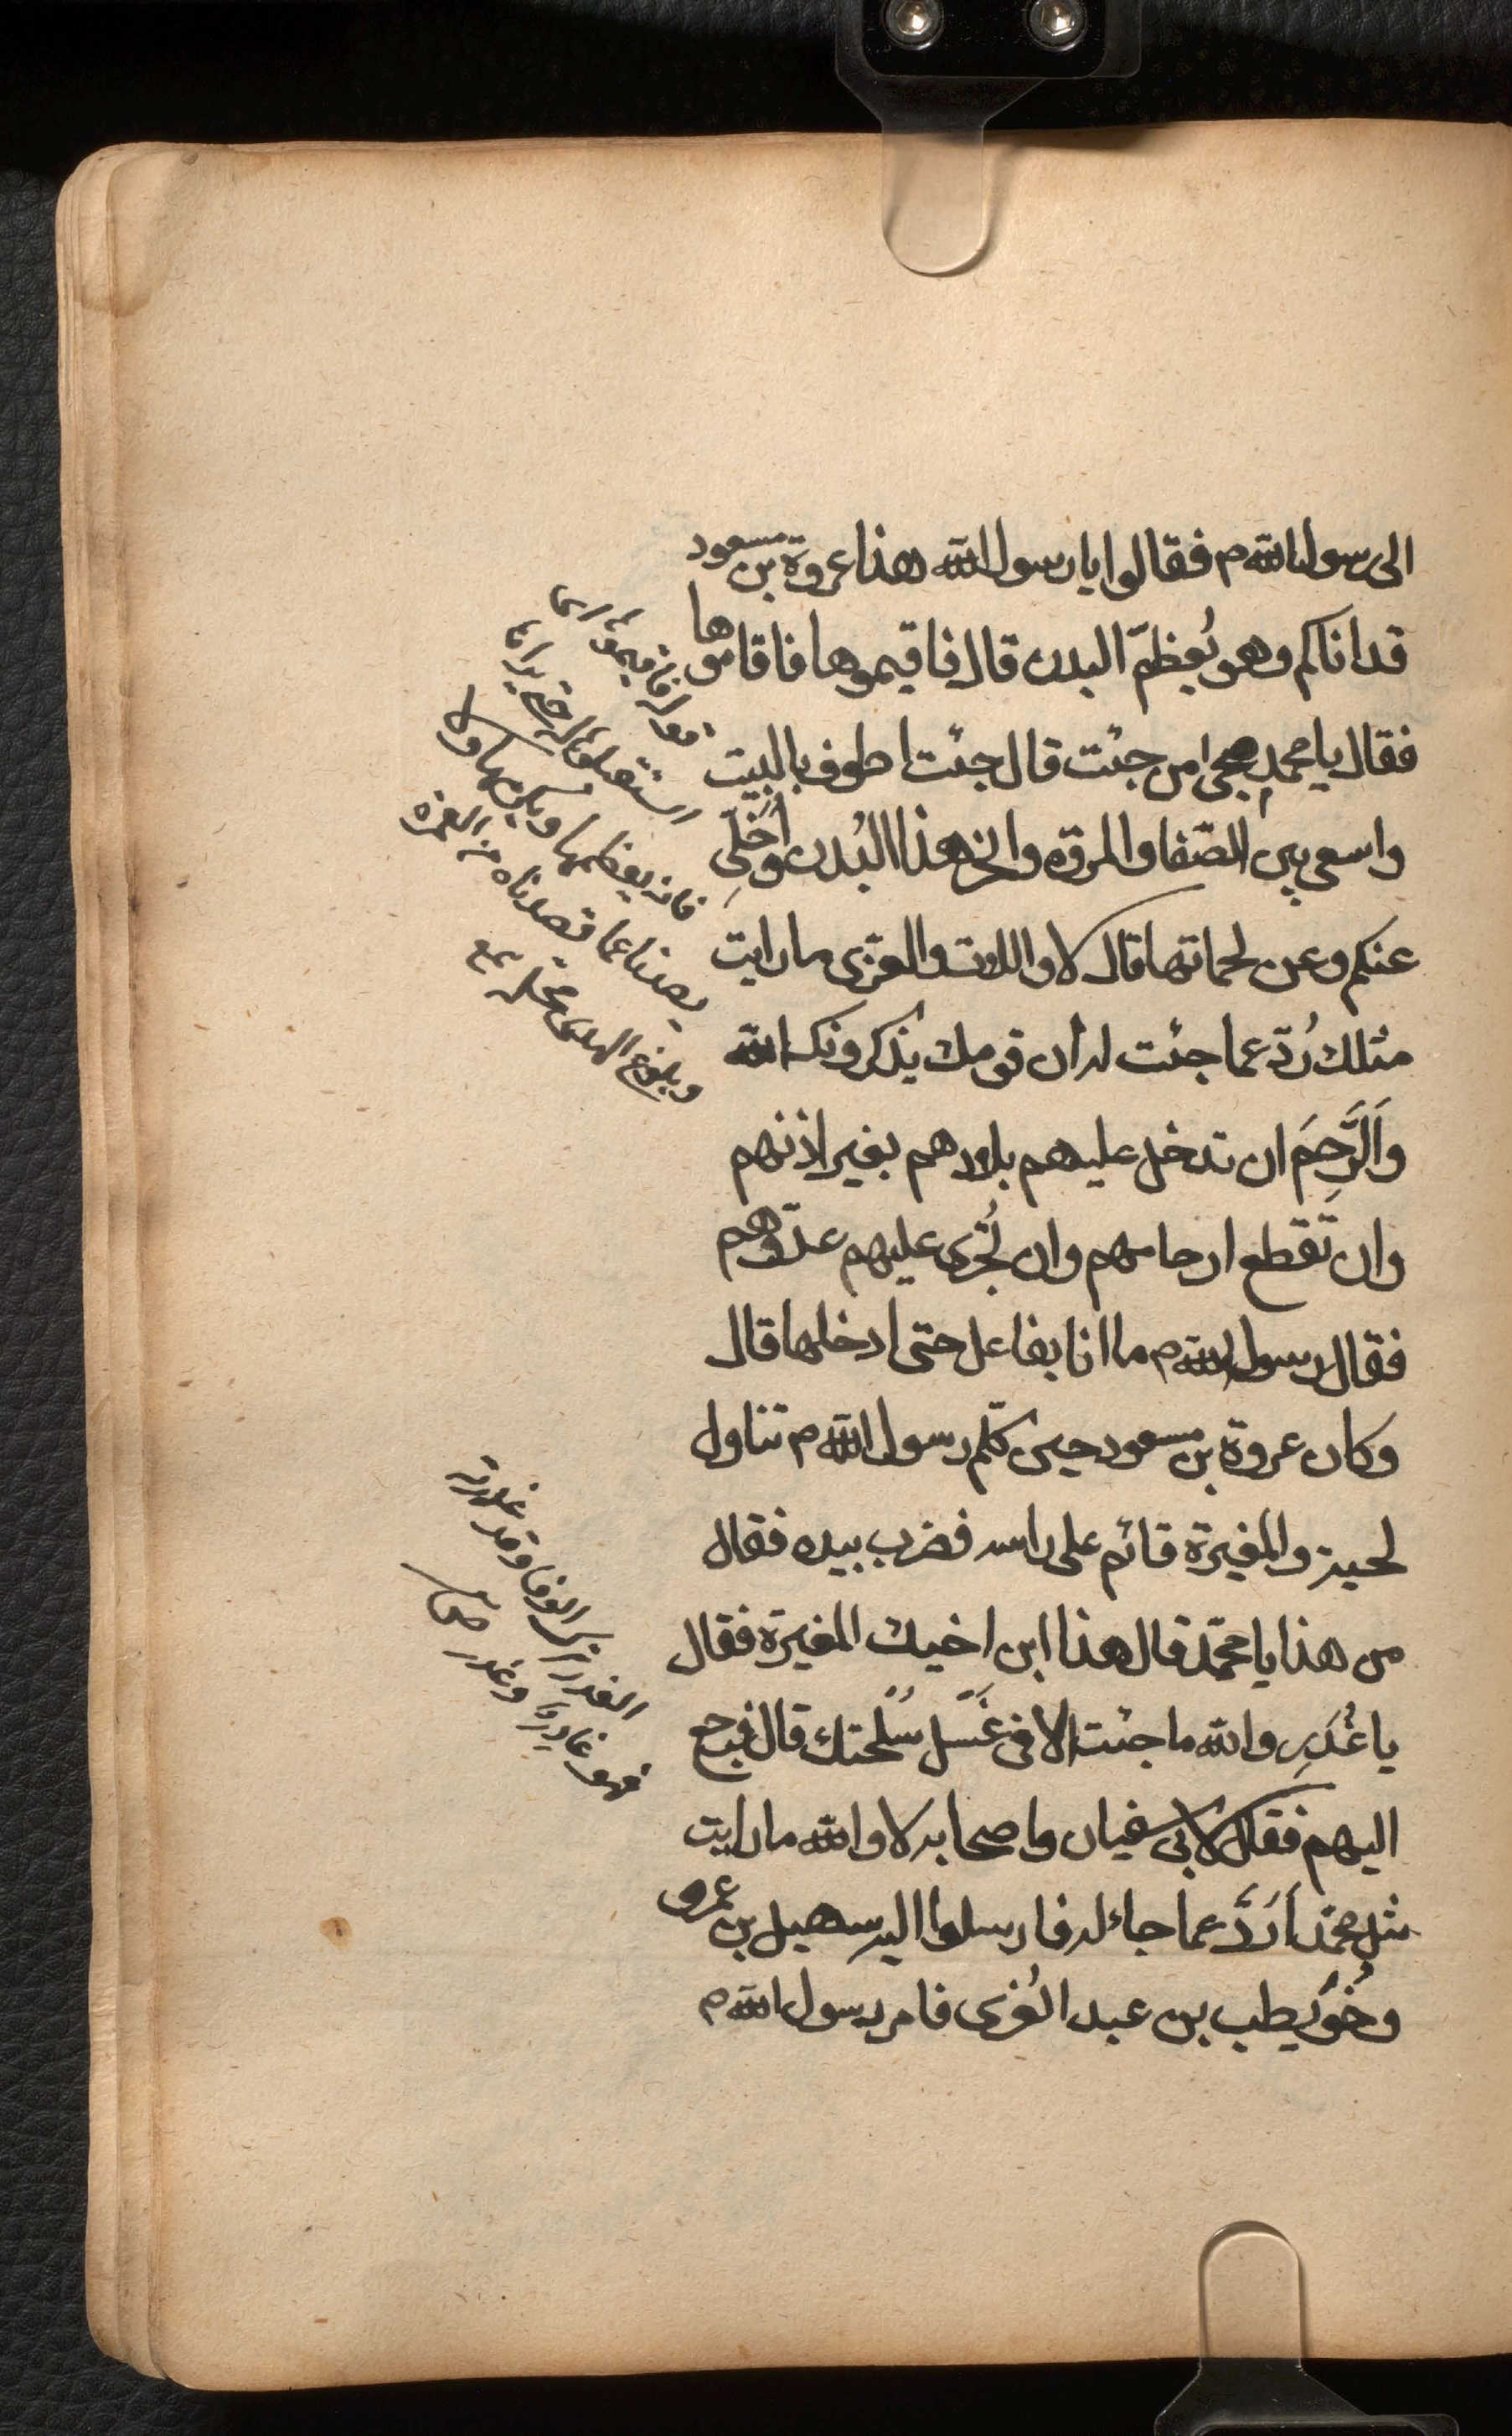 الى رسول الله م فقالوا يا رسول الله هذا عروة بن مسعود
قد اتاكم وهو يُعظّم البدن قال فاقيموها فاقاموها
فقال يا محمد مجئ من جئت قال جئت اطوف بالبيت
واسعى بين الصّفا والمروة وانحر هذا البُدن وَاُخَلِّي
عنكم وعن لحماتها قال لا واللات والعزى ما رايت
مثلك رُدّ عما جئت له ان قومك يذكرونك الله
وَالرَّحِمَ ان تدخل عليهم بلادهم بغير اذنهم
وان تَقطع ارحامهم وان تُجرى عليهم عدوهم
فقال رسول الله م ما انا بفاعل حتى ادخلها قال
وكان عروة بن مسعود حين كلّم رسول الله م تناول
لحيته والمغيرة قائم على راسه فضرب بيده فقال
من هذا يا محمّد قال هذا ابن اخيك المغيرة فقال
يا غُدَرِ والله ما جئت الا فى غَسّل سُلْحتك قال فرجع
اليهم فقال لابى سفيان واصحابه لا والله ما رايت
مثل محمّد اَرَدَّ عما جاء له فارسلوا اليه سهيل بن عمرو
وحُوَيطب بن عبد العُزى فامر رسول الله م
قوله فاقيموها اى
استقبلوا
فانه يعظمها ولا
يصدنا عما قصدناه من العمرة
وبلوغ الهدى محله مع
الغدر ترك الوفا وقد غدر به
فهو غادر وغدر ص